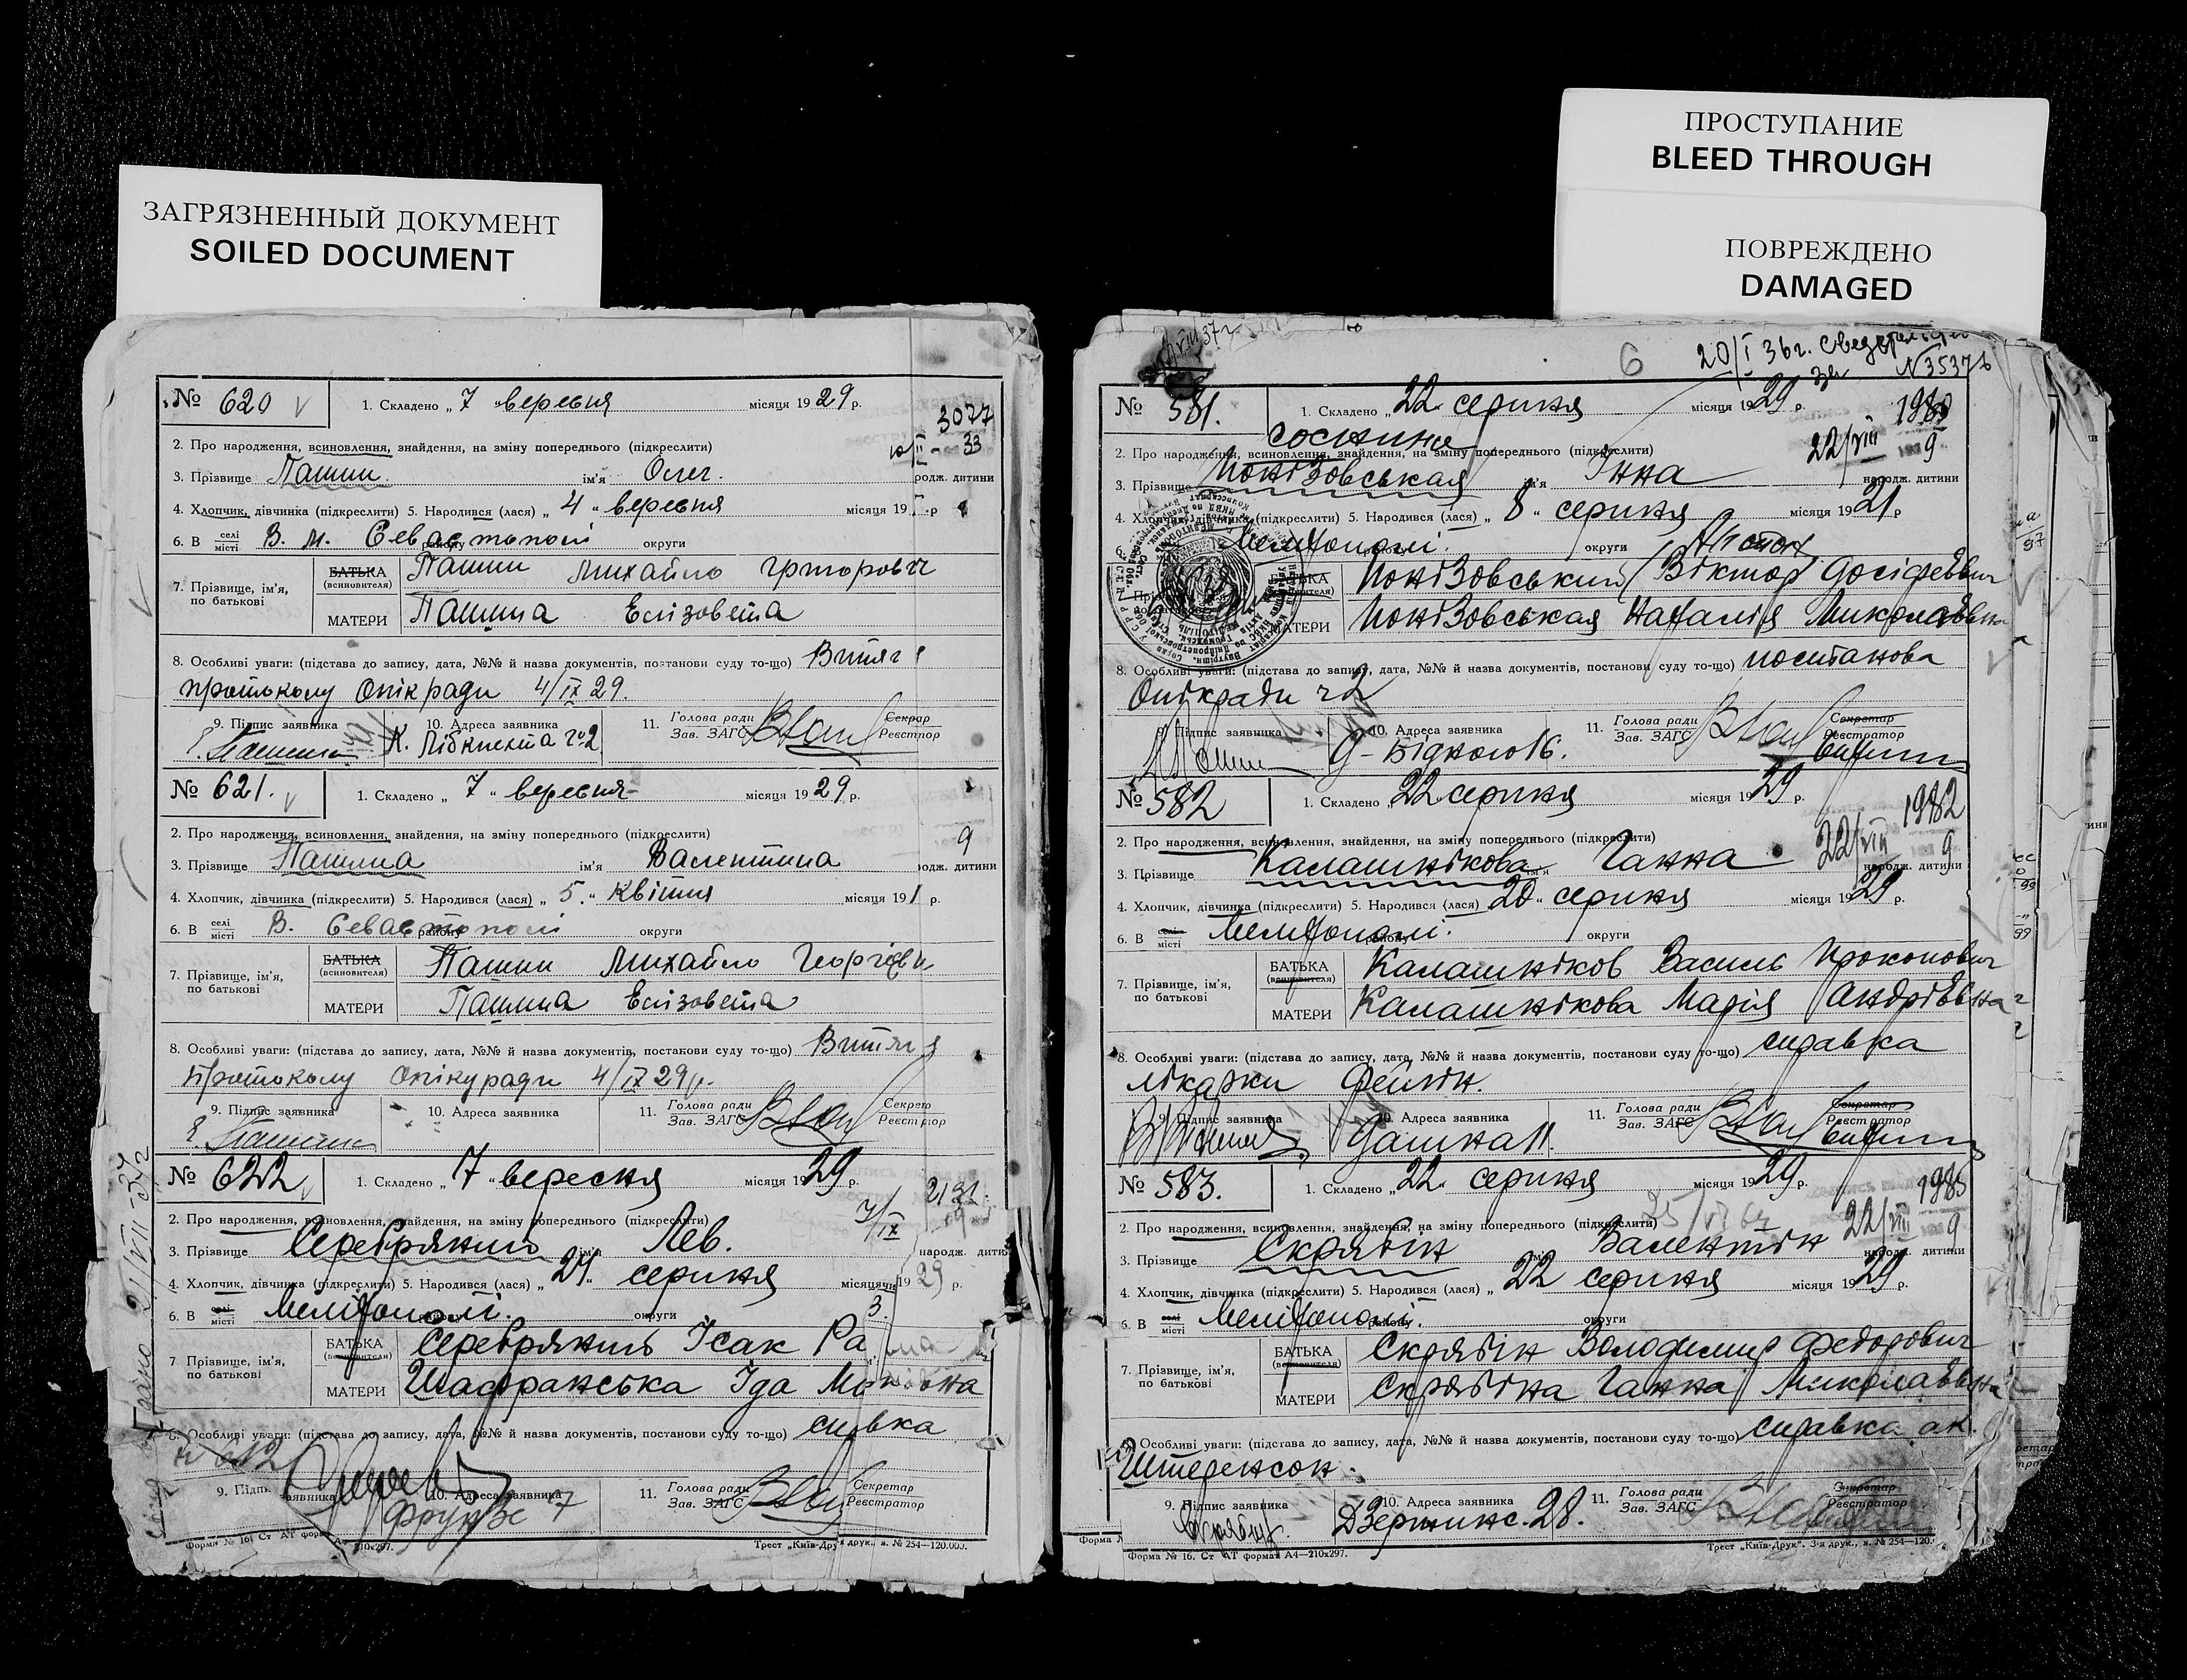 ЗАГРЯЗНЕННЫЙ ДОКУМЕНТ
SOILED DOCUMENT
ПРОСТУПАНИЕ
BLEED THROUGH
ПОВРЕЖДЕНО
DAMAGED
№ 620 1. Складено „ 7 " вересня місяця 1929 р.
3077
2. Про народження, всиновлення, знайдення, на зміну попереднього (підкреслити)
33
3. Прізвище Пашин ім'я Олег. родж. дитини
4. Хлопчик, дівчинка (підкреслити) 5. Народився (лася) „ 4 " вересня місяця 19 р
6. В селі місті В. м. Севастополі району округи
7. Прізвище, ім'я, по батькові
БАТЬКА (всиновителя) Пашин Михайло Григорович
МАТЕРИ Пашина Елізовета
8. Особливі уваги: (підстава до запису, дата, №№ й назва документів, постанови суду то-що) Витяг
протоколу Опікради 4/IX 29.
9. Підпис заявника 10. Адреса заявника 11. Голова ради Зав. ЗАГС Секрар Реєстрор
К. Лібкнехта № 2
№ 621. 1. Складено „ 7 " вересня місяця 1929 р.
2. Про народження, всиновлення, знайдення, на зміну попереднього (підкреслити) 9
3. Прізвище Пашина ім'я Валентина одж. дитини
4. Хлопчик, дівчинка (підкреслити) 5. Народився (лася) „ 5. " квітня місяця 191 р.
6. В селі місті В. Севастополі району округи
7. Прізвище, ім'я, по батькові
БАТЬКА (всиновителя) Пашин Михайло Георгієви
МАТЕРИ Пашина Елізовета
8. Особливі уваги: (підстава до запису, дата, №№ й назва документів, постанови суду то-що) Витяг з
протоколу Опікуради 4/IX 29 р.
9. Підпис заявника 10. Адреса заявника 11. Голова ради Зав. ЗАГС Секрет Реєстрор
№ 622 1. Складено „ 7 " вересня місяця 1929 р.
2131.
7/IX
2. Про народження, всиновлення, знайдення, на зміну попереднього (підкреслити)
3. Прізвище Серебряний ім'я Лев. народж. дити
4. Хлопчик, дівчинка (підкреслити) 5. Народився (лася) „ 24 " серпня місяця 1929 р.
6. В селі місті Мелітополі. району округи 3.
7 Прізвище, ім'я, по батькові
БАТЬКА (всиновителя) Серебряний Ісак Ра
МАТЕРИ Шафранська Іда
8. Особливі уваги: (підстава до запису, дата, №№ й назва документів, постанови суду то-що)
9. Підп заявника 10. Адреса заявника 11. Голова ради Зав. ЗАГС Секретар Реєстратор
Фрунзе 7
Форма № 16. Ст АТ форм А 210х297. Трест „Київ-Друк друк., з. № 254—120.000.
6 20/I 36 г.
№ 581. 1. Складено „ 22 " серпня місяця 1929 р.
22/VIII 9
2. Про народження, всиновлення, знайдення, на зміну попереднього (підкреслити)
3. Прізвище Понізовськая ім'я Інна народж. дитини
4. Хлопчик, дівчинка (підкреслити) 5. Народився (лася) „ 8 " серпня місяця 1921 р
6. Мелітополі. округи
БАТЬКА Понізовський Віктор Досіфеєвич
МАТЕРИ Понізовськая Наталія Миколаєвна
8. Особливі уваги: (підстава до запису, дата, №№ й назва документів, постанови суду то-що) постанова
Опікради
9. Підпис заявника 10. Адреса заявника 11. Голова ради Зав. ЗАГС Секретар Реєстратор
Д-Бідного 16.
№ 582 1. Складено „ 22 " серпня місяця 1929 р.
1982
22/VIII 9
2. Про народження, всиновлення, знайдення, на зміну попереднього (підкреслити)
3. Прізвище Калашнікова ім'я Ганна народж. дитини
4. Хлопчик, дівчинка (підкреслити) 5. Народився (лася) 20 " серпня місяця 1929 р.
6. В селі місті Мелітополі. району округи
7. Прізвище, ім'я, по батькові
БАТЬКА (всиновителя) Калашніков Василь Прокопович
МАТЕРИ Калашнікова Марія Андріївна
8. Особливі уваги: (підстава до запису, дата, №№ й назва документів, постанови суду то-що) справка
лікарки Фейгін.
9. Підпис заявника 10. Адреса заявника 11. Голова ради Зав. ЗАГС Секретар Реєстратор
№ 583. 1. Складено „ 22 " серпня місяця 1929 р.
1985
22/VIII 9
2. Про народження, всиновлення, знайдення, на зміну попереднього (підкреслити)
3. Прізвище Скрябін Валентін народж. дитини
4. Хлопчик, дівчинка (підкреслити) 5. Народився (лася) „ 22 серпня місяця 1929 р.
6. В селі місті Мелітополі. району округи
7. Прізвище, ім'я, по батькові
БАТЬКА (всиновителя) Скрябін Володимир Федорович
МАТЕРИ Скрябіна Ганна Миколаєвна
8. Особливі уваги: (підстава до запису, дата, №№ й назва документів, постанови суду то-що) справка ак.
Штеренсон.
9. Підпис заявника 10. Адреса заявника 11. Голова ради Зав. ЗАГС Секретар Реєстратор
Дзержинс. 28.
Форма № 16. Ст АТ формат А4—210х297. Трест „Київ-Друк". 3-я друк., з. № 254—120.